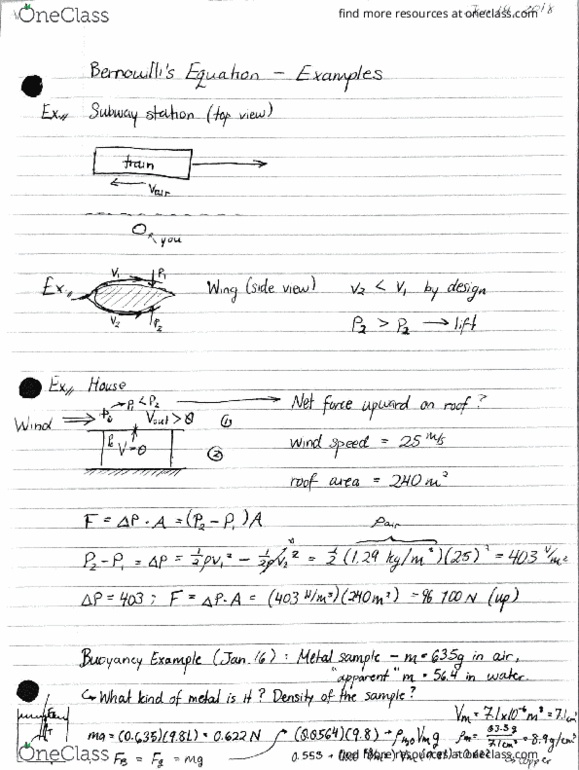 OneClass
find more resources at oneclass.com
2018
Bernouilli's Equation - Examples
Ex// Subway station (top view)
train
Vair
you
Ex// V₁ P₁ Wing (side view) V₂ < V₁ by design
V₂ P₂ P₂ > P₂ → lift
Ex// House
P₁ < P₂ → Net force upward on roof?
Wind P₀ Vout > 0 ①
P₂ V=0 ② wind speed = 25 m/s
roof area = 240 m²
F = ΔP · A = (P₂ - P₁)A ρair
P₂-P₁ = ΔP = ½ρV₁² - ½ρV₂² = ½ (1.29 kg/m³)(25)² = 403 N/m²
ΔP = 403 ; F = ΔP·A = (403 N/m²)(240m²) = 96 700 N (up)
Buoyancy Example (Jan. 16) : Metal sample - m = 63.5g in air,
"apparent" m = 56.4 in water
↳ What kind of metal is it? Density of the sample?
Vm = 7.1x10⁻⁶ m³ = 7.1cm³
mg = (0.635)(9.81) = 0.622 N → (0.0564)(9.8) + ρH₂O Vm g ρm = 63.5g / 7.1cm³ = 8.9g/cm³
FB = Fg = mg
find more resources at oneclass.com
copper
OneClass